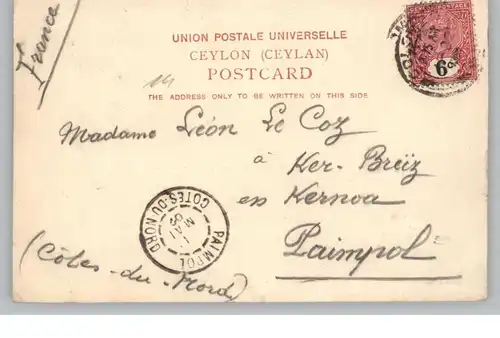 France
UNION POSTALE UNIVERSELLE
CEYLON (CEYLAN)
POSTCARD
THE ADDRESS ONLY TO BE WRITTEN ON THIS SIDE
14
6d
Madame Léon Le Coz
à Ker-Breïz
en Kernoa
Paimpol
(Côtes-du-Nord)
PAIMPOL
COTES-DU-NORD
1
MAI
05